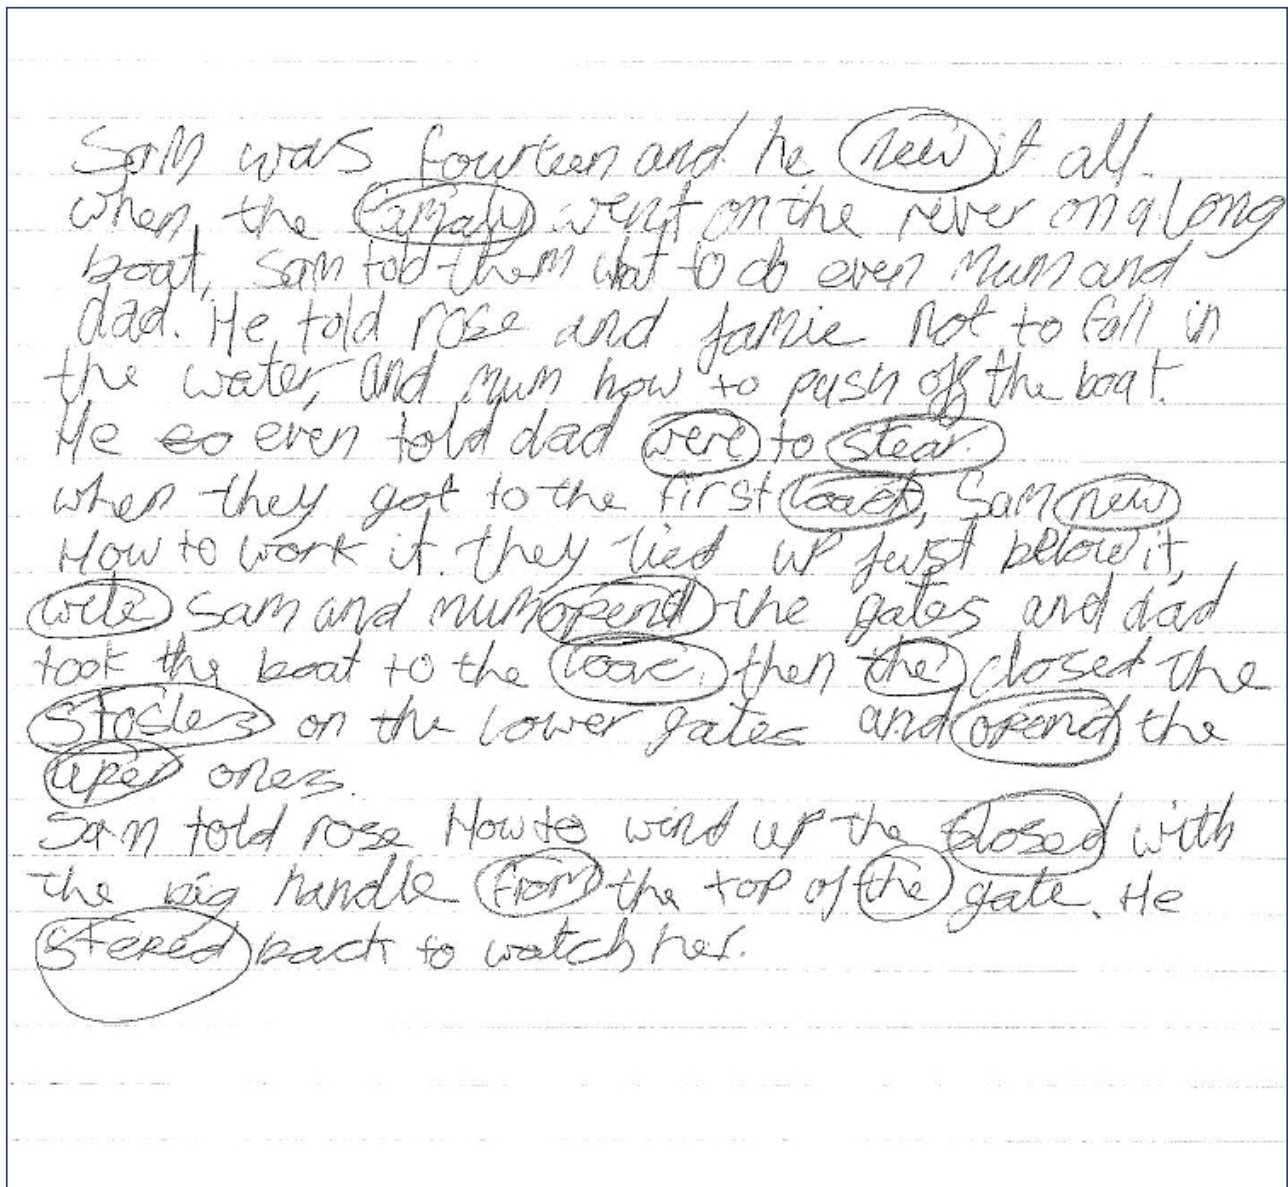 Sam was fourteen and he new it all.
when the famaly went on the river on a long
boat, Sam told them wat to do even Mum and
dad. He told rose and jamie not to fall in
the water, and mum how to push off the boat.
He even told dad were to stear.
when they got to the first loack, Sam new
How to work it. they tied up just below it,
wile Sam and mum opend the gates and dad
took the boat to the loave. then the closed the
stosles on the lower gates and opend the
uper ones.
Sam told rose How to wind up the closed with
the big handle from the top of the gate. He
steped back to watch her.